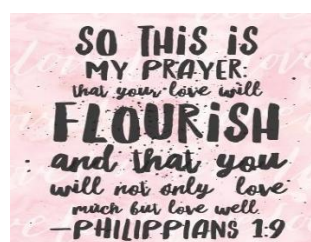 SO THIS IS
MY PRAYER:
that your love will
FLOURISH
and that you
will not only love
much but love well.
—PHILIPPIANS 1:9